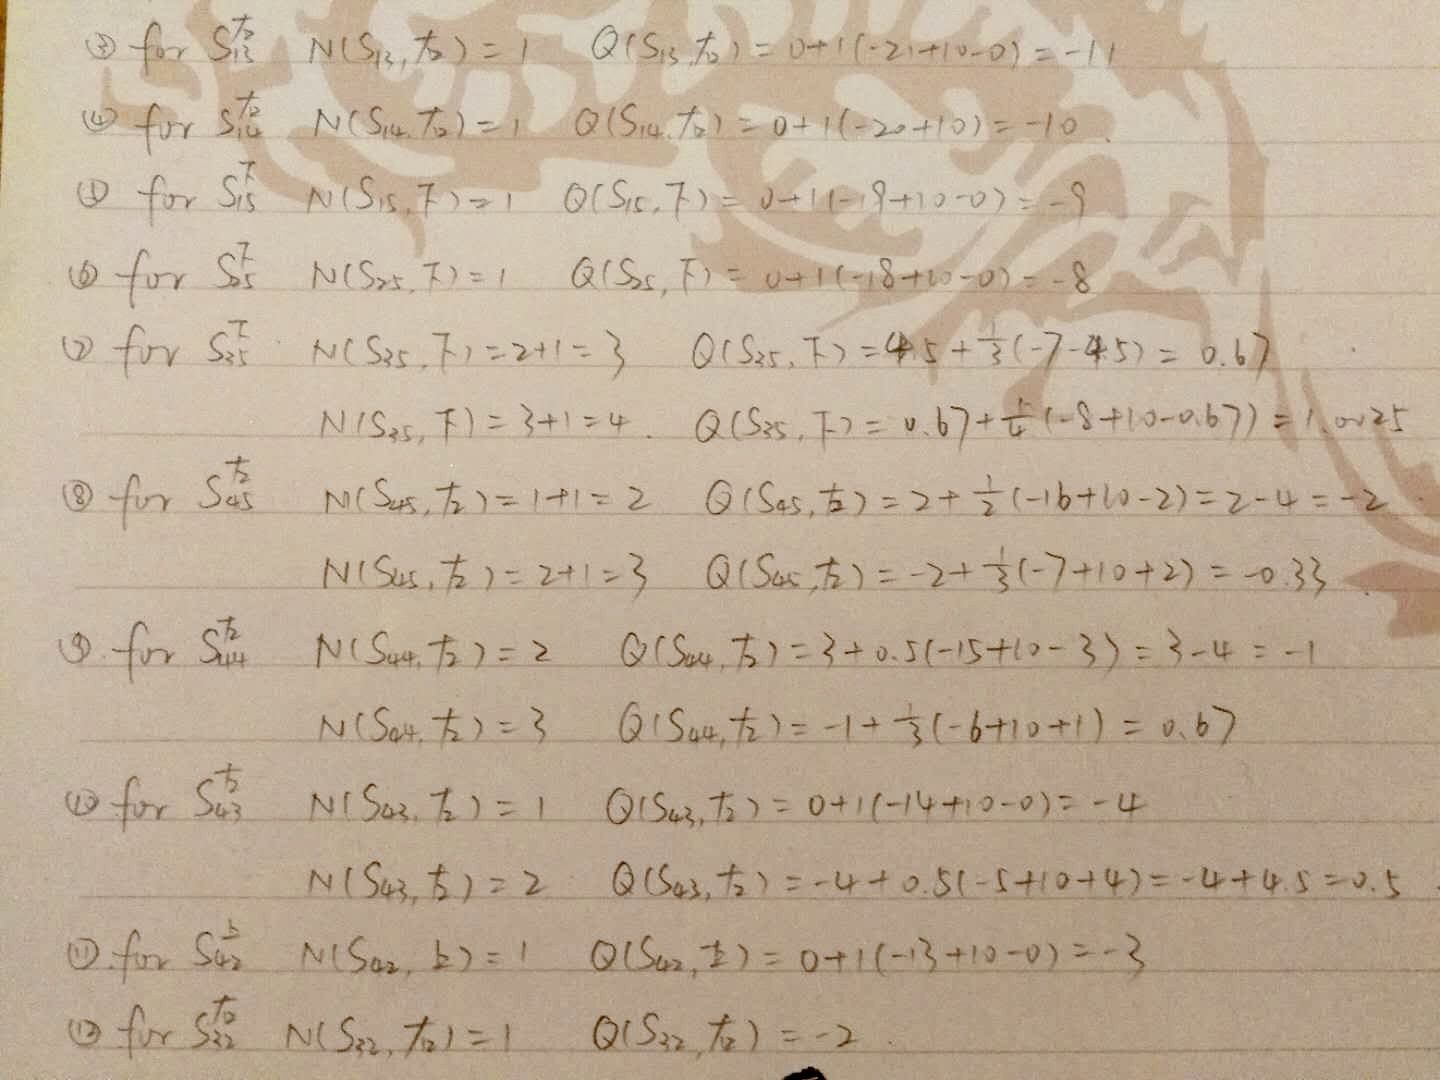 ③ for S₁₃^右 N(S₁₃,右)=1 Q(S₁₃,右)=0+1(-21+10-0)=-11
④ for S₁₄^右 N(S₁₄,右)=1 Q(S₁₄,右)=0+1(-20+10)=-10
⑤ for S₁₅^下 N(S₁₅,下)=1 Q(S₁₅,下)=0+1(-19+10-0)=-9
⑥ for S₂₅^下 N(S₂₅,下)=1 Q(S₂₅,下)=0+1(-18+10-0)=-8
⑦ for S₃₅^下 N(S₃₅,下)=2+1=3 Q(S₃₅,下)=4.5+1/3(-7-4.5)=0.67
N(S₃₅,下)=3+1=4. Q(S₃₅,下)=0.67+1/4(-8+10-0.67)=1.0025
⑧ for S₄₅^左 N(S₄₅,左)=1+1=2 Q(S₄₅,左)=2+1/2(-16+10-2)=2-4=-2
N(S₄₅,左)=2+1=3 Q(S₄₅,左)=-2+1/3(-7+10+2)=-0.33
⑨ for S₄₄^左 N(S₄₄,左)=2 Q(S₄₄,左)=3+0.5(-15+10-3)=3-4=-1
N(S₄₄,左)=3 Q(S₄₄,左)=-1+1/3(-6+10+1)=0.67
⑩ for S₄₃^左 N(S₄₃,左)=1 Q(S₄₃,左)=0+1(-14+10-0)=-4
N(S₄₃,左)=2 Q(S₄₃,左)=-4+0.5(-5+10+4)=-4+4.5=0.5
⑪ for S₄₂^上 N(S₄₂,上)=1 Q(S₄₂,上)=0+1(-13+10-0)=-3
⑫ for S₃₂^右 N(S₃₂,右)=1 Q(S₃₂,右)=-2.